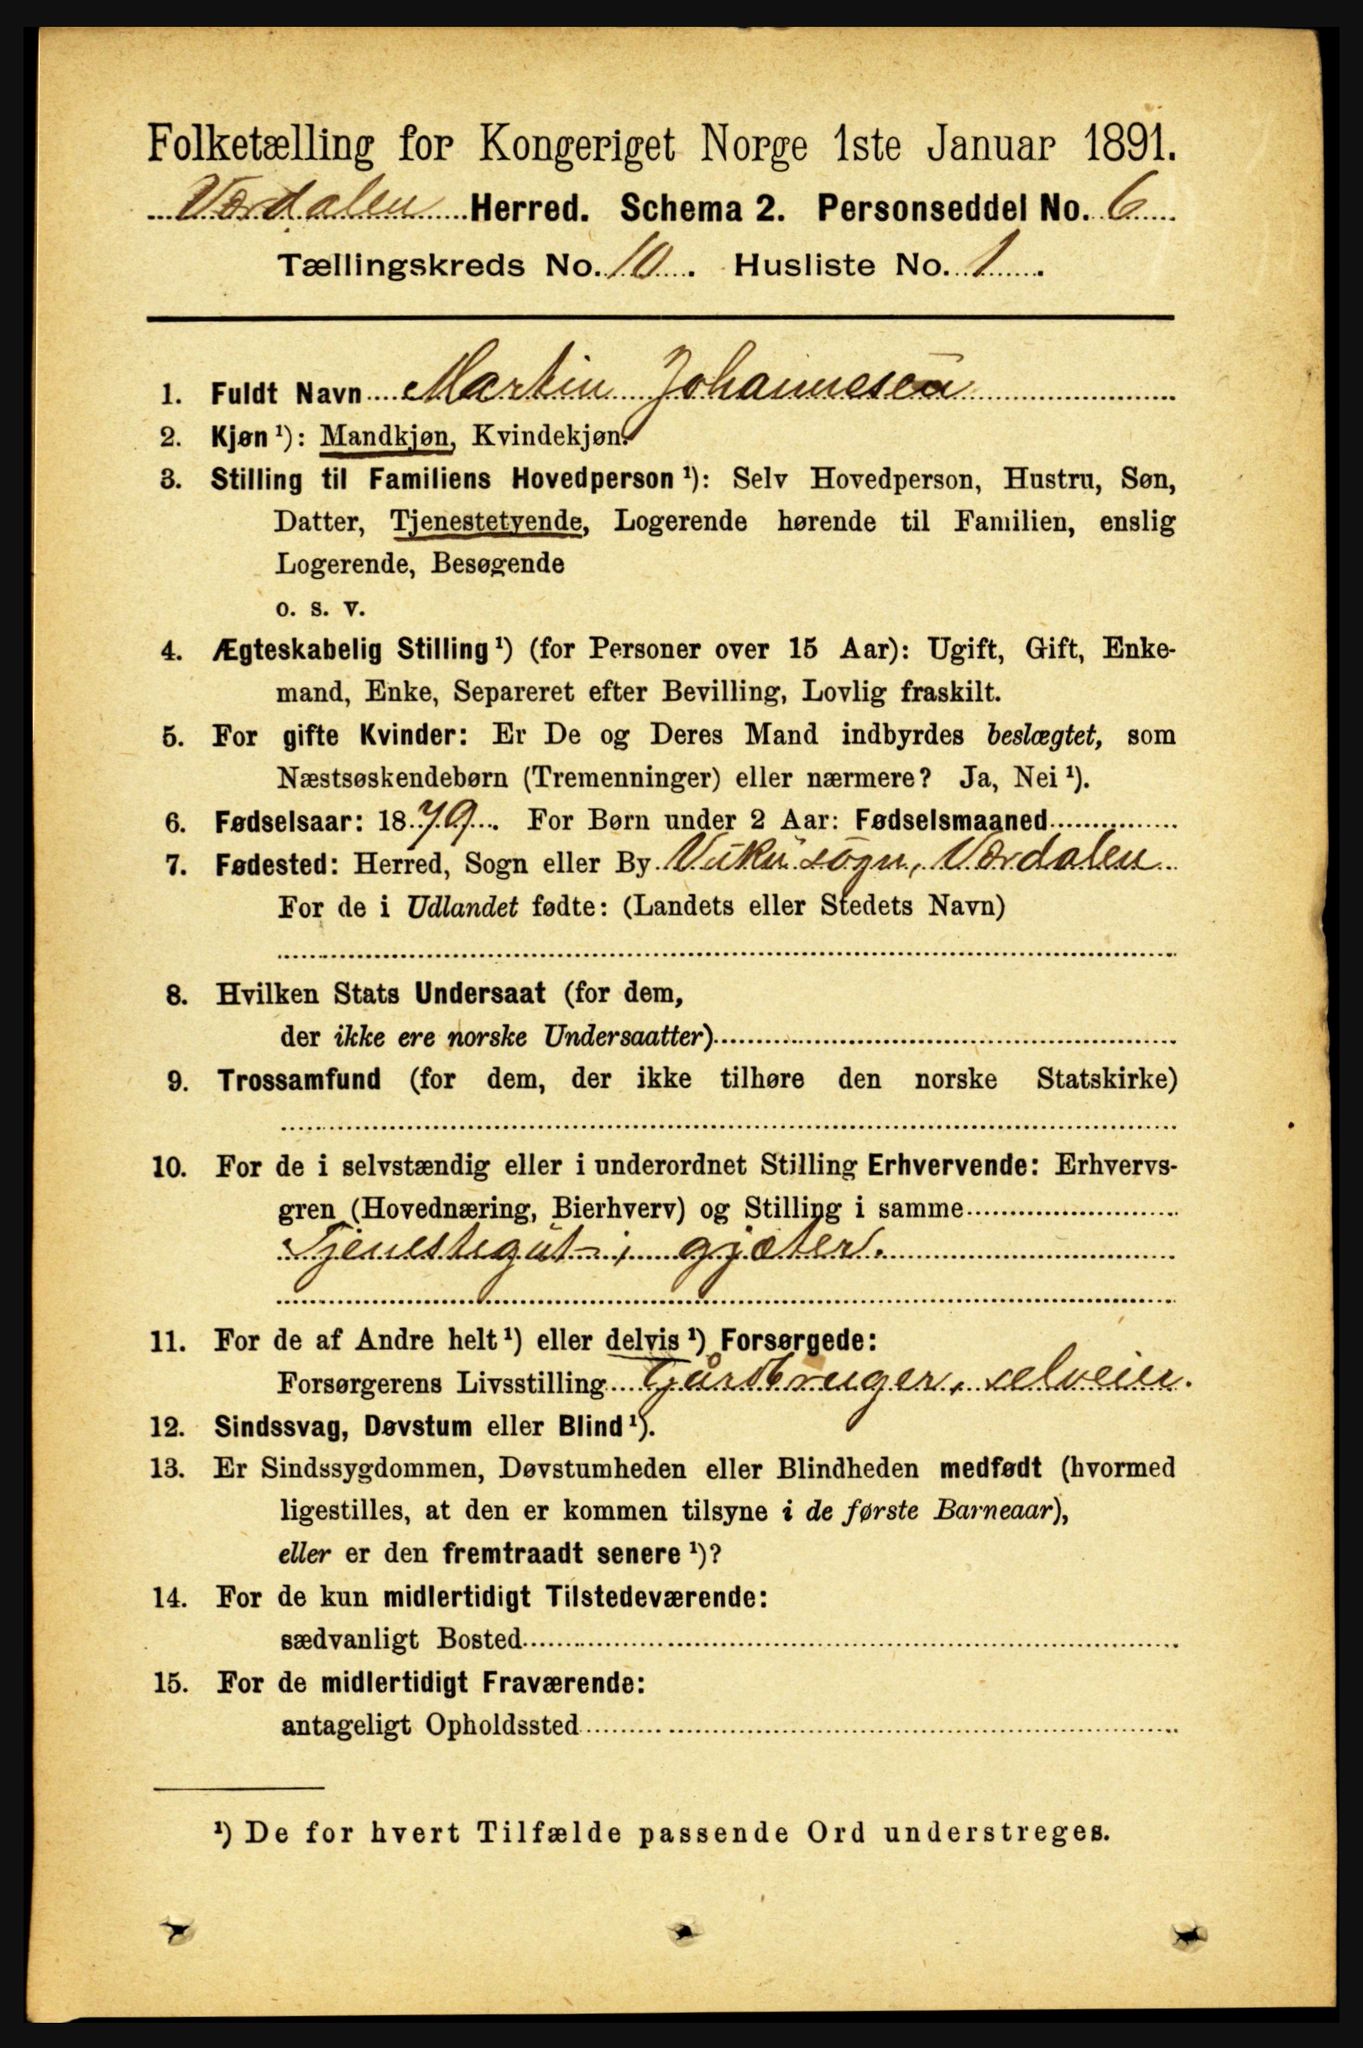 Folketælling for Kongeriget Norge 1ste Januar 1891.
Værdalen Herred. Schema 2. Personseddel No. 6
Tællingskreds No. 10. Husliste No. 1.
1. Fuldt Navn Martin Johannesen
2. Kjøn ¹): Mandkjøn, Kvindekjøn.
3. Stilling til Familiens Hovedperson ¹): Selv Hovedperson, Hustru, Søn,
Datter, Tjenestetyende, Logerende hørende til Familien, enslig
Logerende, Besøgende
o. s. v.
4. Ægteskabelig Stilling ¹) (for Personer over 15 Aar): Ugift, Gift, Enke-
mand, Enke, Separeret efter Bevilling, Lovlig fraskilt.
5. For gifte Kvinder: Er De og Deres Mand indbyrdes beslægtet, som
Næstsøskendebørn (Tremenninger) eller nærmere? Ja, Nei ¹).
6. Fødselsaar: 1879. For Børn under 2 Aar: Fødselsmaaned
7. Fødested: Herred, Sogn eller By Vuku sogn, Værdalen
For de i Udlandet fødte: (Landets eller Stedets Navn)
8. Hvilken Stats Undersaat (for dem,
der ikke ere norske Undersaatter)
9. Trossamfund (for dem, der ikke tilhøre den norske Statskirke)
10. For de i selvstændig eller i underordnet Stilling Erhvervende: Erhvervs-
gren (Hovednæring, Bierhverv) og Stilling i samme
Tjenestegut; gjæter.
11. For de af Andre helt ¹) eller delvis ¹) Forsørgede:
Forsørgerens Livsstilling Gårdbruger, selveier.
12. Sindssvag, Døvstum eller Blind ¹).
13. Er Sindssygdommen, Døvstumheden eller Blindheden medfødt (hvormed
ligestilles, at den er kommen tilsyne i de første Barneaar),
eller er den fremtraadt senere ¹)?
14. For de kun midlertidigt Tilstedeværende:
sædvanligt Bosted
15. For de midlertidigt Fraværende:
antageligt Opholdssted
¹) De for hvert Tilfælde passende Ord understreges.